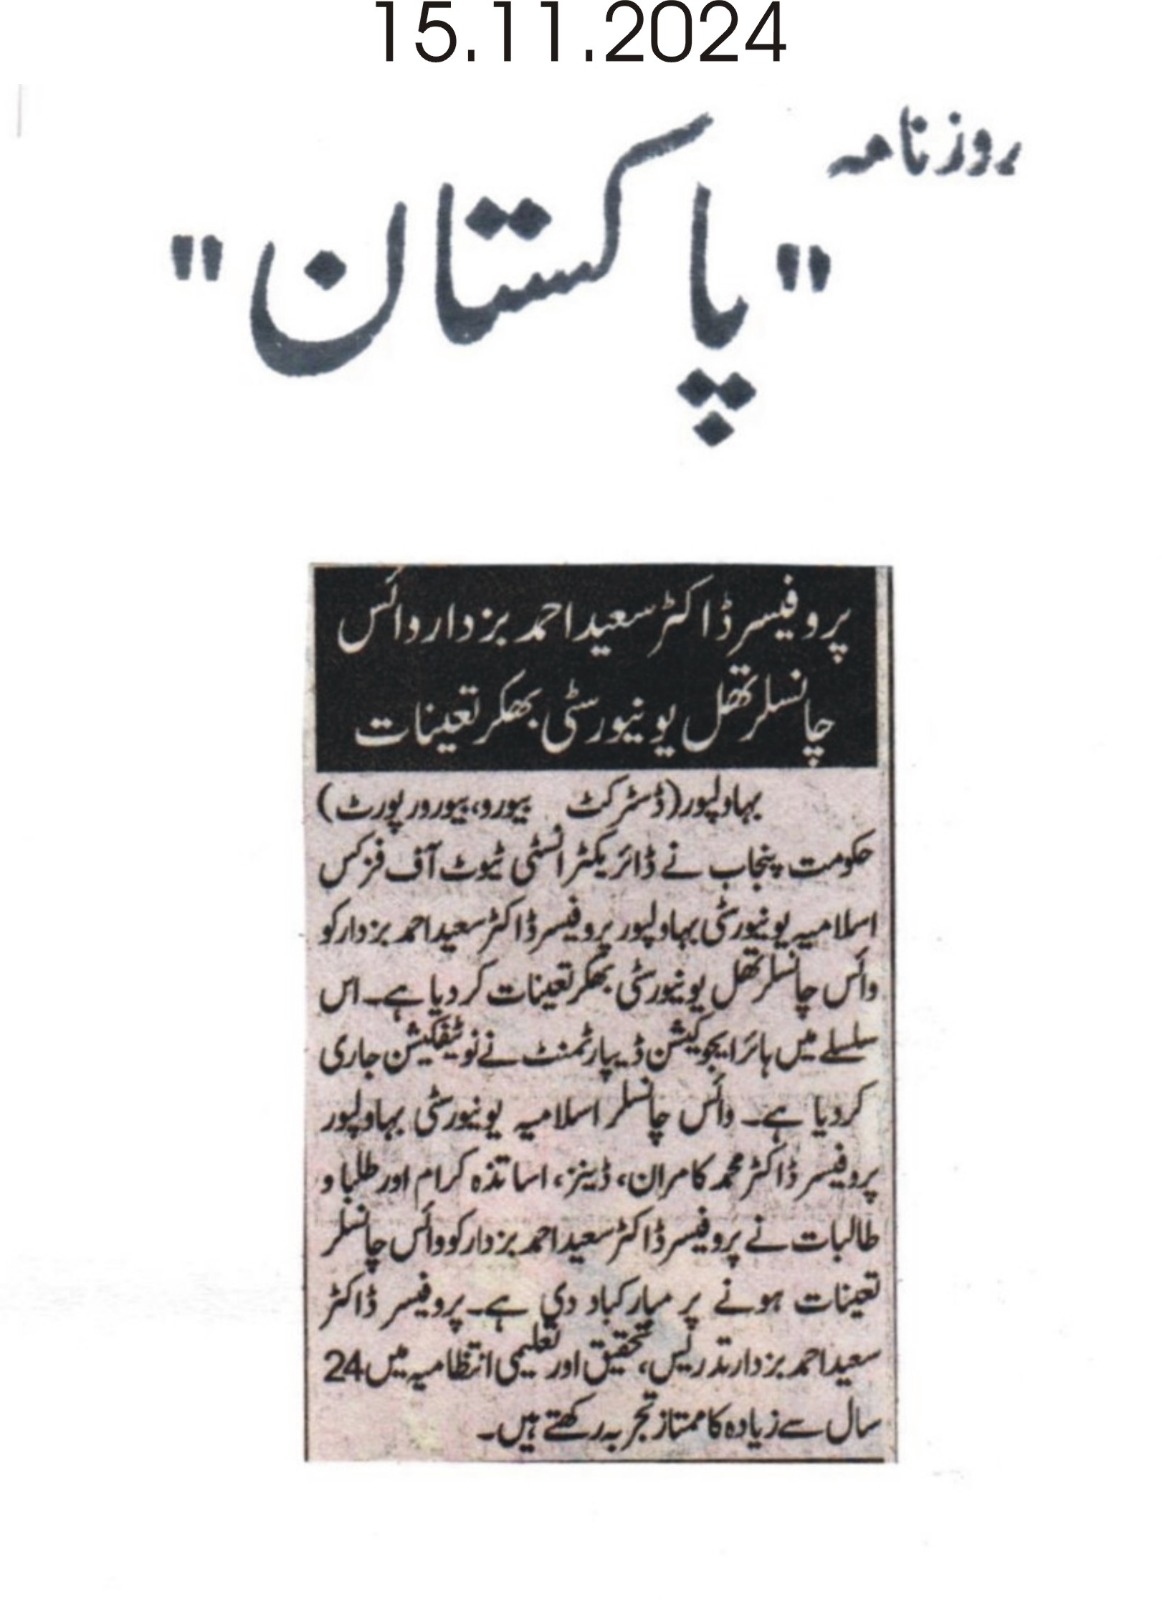 15.11.2024
روزنامہ
"پاکستان"
پروفیسر ڈاکٹر سعید احمد بزدار وائس
چانسلر تھل یونیورسٹی بھکر تعینات
بہاولپور (ڈسٹرکٹ بیورو، بیورو رپورٹ)
حکومت پنجاب نے ڈائریکٹر انسٹی ٹیوٹ آف فزکس
اسلامیہ یونیورسٹی بہاولپور پروفیسر ڈاکٹر سعید احمد بزدار کو
وائس چانسلر تھل یونیورسٹی بھکر تعینات کر دیا ہے۔ اس
سلسلے میں ہائر ایجوکیشن ڈیپارٹمنٹ نے نوٹیفکیشن جاری
کر دیا ہے۔ وائس چانسلر اسلامیہ یونیورسٹی بہاولپور
پروفیسر ڈاکٹر محمد کامران، ڈینز، اساتذہ کرام اور طلبا و
طالبات نے پروفیسر ڈاکٹر سعید احمد بزدار کو وائس چانسلر
تعینات ہونے پر مبارکباد دی ہے۔ پروفیسر ڈاکٹر
سعید احمد بزدار تدریس، تحقیق اور تعلیمی انتظامیہ میں 24
سال سے زیادہ کا ممتاز تجربہ رکھتے ہیں۔